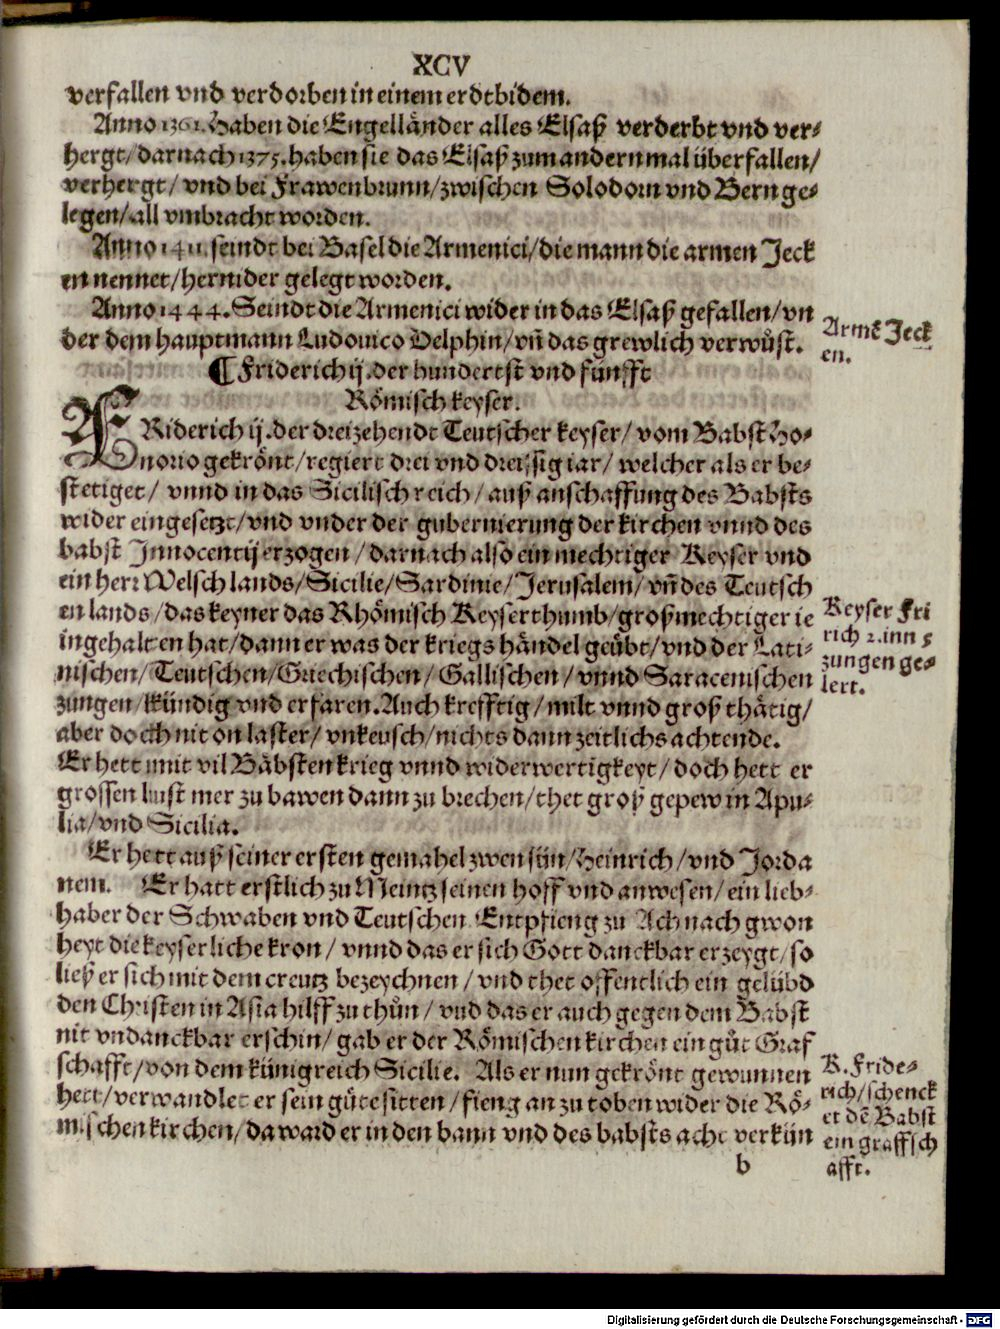 XCV
verfallen vnd verdorben in einem erdtbidem.
Anno 1361. Haben die Engelländer alles Elsaß verderbt vnd ver⸗
hergt/darnach 1375. haben sie das Elsaß zum andernmal überfallen/
verhergt/ vnd bei Frawenbrunn/zwischen Solodorn vnd Bern ge⸗
legen/all vmbracht worden.
Anno 1411. seindt bei Basel die Armenici/die mann die armen Jeck
en nennet/hernider gelegt worden.
Anno 1444. Seindt die Armenici wider in das Elsaß gefallen/vn
der dem hauptmann Ludouico Delphin/vñ das grewlich verwůst.
Armẽ Jeck
en.
¶ Friderich ij. der hundertst vnd fünfft
Römisch keyser.
FRiderich ij. der dreizehendt Teutscher keyser/ vom Babst Ho⸗
norio gekrönt/regiert drei vnd dreissig iar/ welcher als er be⸗
stetiget/ vnnd in das Sicilisch reich/ auß anschaffung des Babsts
wider eingesetzt/vnd vnder der gubernierung der kirchen vnnd des
babst Innocentij erzogen/darnach also ein mechtiger Keyser vnd
ein herr Welsch lands/Sicilie/Sardinie/Jerusalem/ vñ des Teutsch
en lands/das keyner das Rhömisch Keyserthumb/großmechtiger ie
ingehalten hat/dann er was der kriegs händel geübt/vnd der Lati⸗
nischen/Teutschen/Griechischen/ Gallischen/ vnnd Saracenischen
zungen/kündig vnd erfaren. Auch krefftig/milt vnnd groß thätig/
aber doch nit on laster/ vnkeusch/nichts dann zeitlichs achtende.
Keyser Fri
rich 2. inn 5
zungen ge⸗
lert.
Er hett mit vil Bäbsten krieg vnnd widerwertigkeyt/doch hett er
grossen lust mer zu bawen dann zu brechen/thet groß gepew in Apu⸗
lia/vnd Sicilia.
Er hett auß seiner ersten gemahel zwen sün/Heinrich/vnd Jorda
nem. Er hatt erstlich zu Meintz seinen hoff vnd anwesen/ein lieb⸗
haber der Schwaben vnd Teutschen Entpfieng zu Ach nach gwon
heyt die keyserliche kron/ vnnd das er sich Gott danckbar erzeygt/so
ließ er sich mit dem creutz bezeychnen/vnd thet offentlich ein gelübd
den Christen in Asia hilff zu thůn/ vnd das er auch gegen dem Babst
nit vndanckbar erschin/ gab er der Römischen kirchen ein gůt Graf
schafft/von dem künigreich Sicilie. Als er nun gekrönt gewunnen
hett/verwandlet er sein gůte sitten/fieng an zu toben wider die Rö⸗
mischen kirchen/da ward er in den bann vnd des babsts acht verkün
K. Fride⸗
rich/schenck
et dẽ Babst
ein graffsch
afft.
b
Digitalisierung gefördert durch die Deutsche Forschungsgemeinschaft - DFG